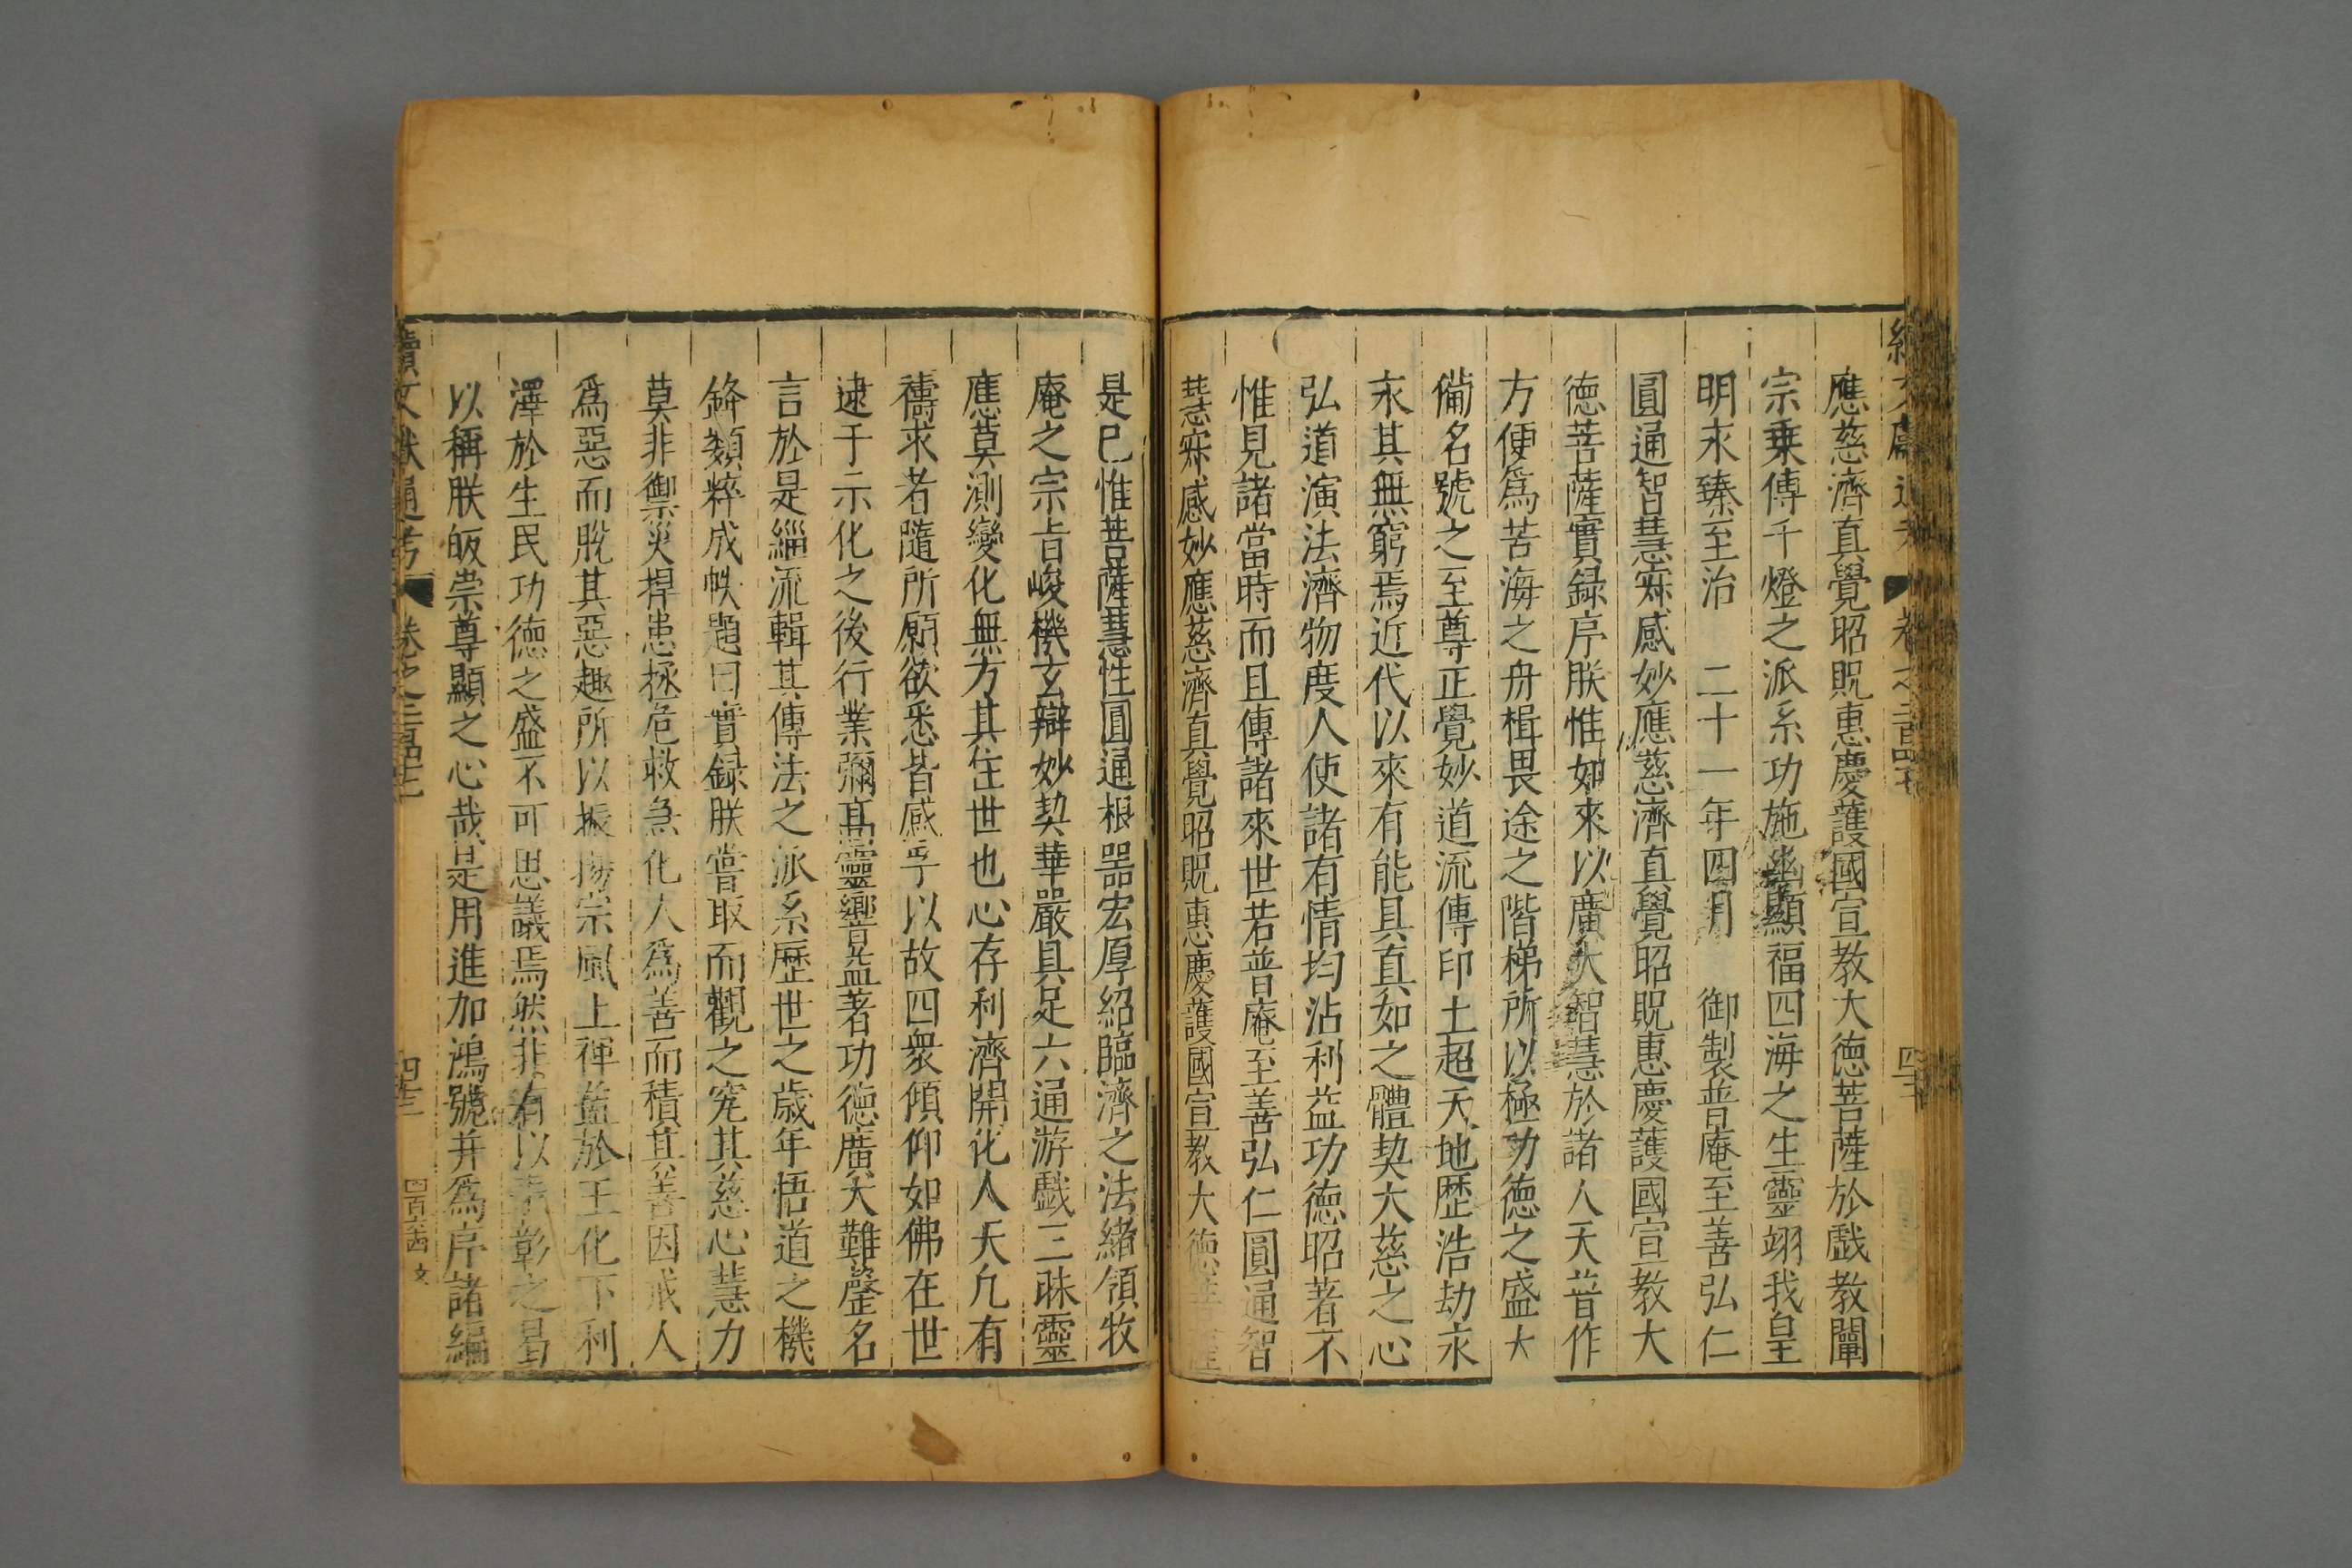 應慈濟直覺昭貺惠慶護國宣教大德菩薩於戲教闡
宗乗傳千燈之派系功施幽顯福四海之生靈翊我皇
明永臻至治　二十一年四月　御製普庵至善弘仁
圓通智慧寂感妙應慈濟直覺昭貺惠慶護國宣教大
德菩薩實録序朕惟如來以廣大智慧於諸人天普作
方便爲苦海之舟楫畏途之階梯所以極功德之盛大
備名號之至尊正覺妙道流傳印土超天地歷浩劫永
永其無窮焉近代以來有能具真如之體契大慈之心
弘道演法濟物度人使諸有情均沾利益功德昭著不
惟見諸當時而且傳諸來世若普庵至善弘仁圓通智
慧寂感妙應慈濟直覺昭貺惠慶護國宣教大德菩薩
是巳惟菩薩慧性圓通根器宏厚紹臨濟之法緒領牧
庵之宗旨峻機玄辯妙契華嚴具足六通游戲三昧靈
應莫測變化無方其住世也心存利濟開化人天凢有
禱求者隨所願欲悉皆感乎以故四衆傾仰如佛在世
逮于示化之後行業彌髙靈響益著功德廣大難罄名
言於是緇流輯其傳法之派系歷世之歲年悟道之機
鋒類粹成帙題曰實録朕嘗取而觀之究其慈心慧力
莫非禦災捍患拯危救急化人爲善而積其善因戒人
爲惡而脫其惡趣所以振揚宗風上裨益於王化下利
澤於生民功德之盛不可思議焉然非有以表彰之曷
以稱朕皈崇尊顯之心哉是用進加鴻號并爲序諸編
續文獻通考　卷之二百四十二　四十二　四百六十四　文